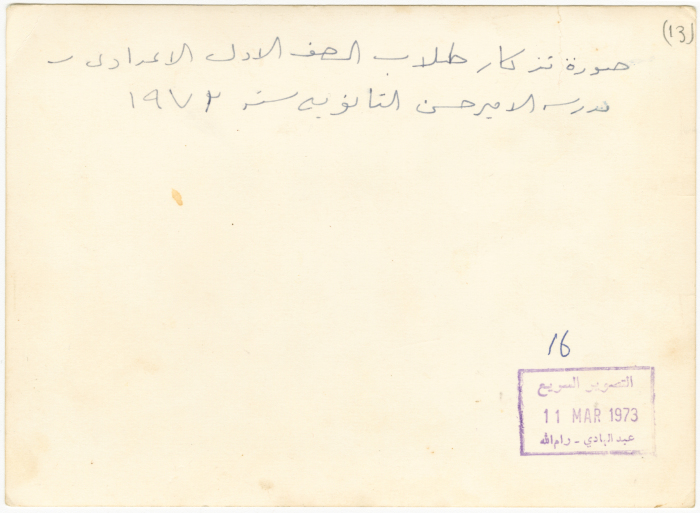 (13)
صورة تذكار طلاب الصف الاول الاعدادي ب
مدرسه الامير حسن الثانويه سنه ١٩٧٢
16
التصوير السريع
11 MAR 1973
عبد الهادي - رام الله